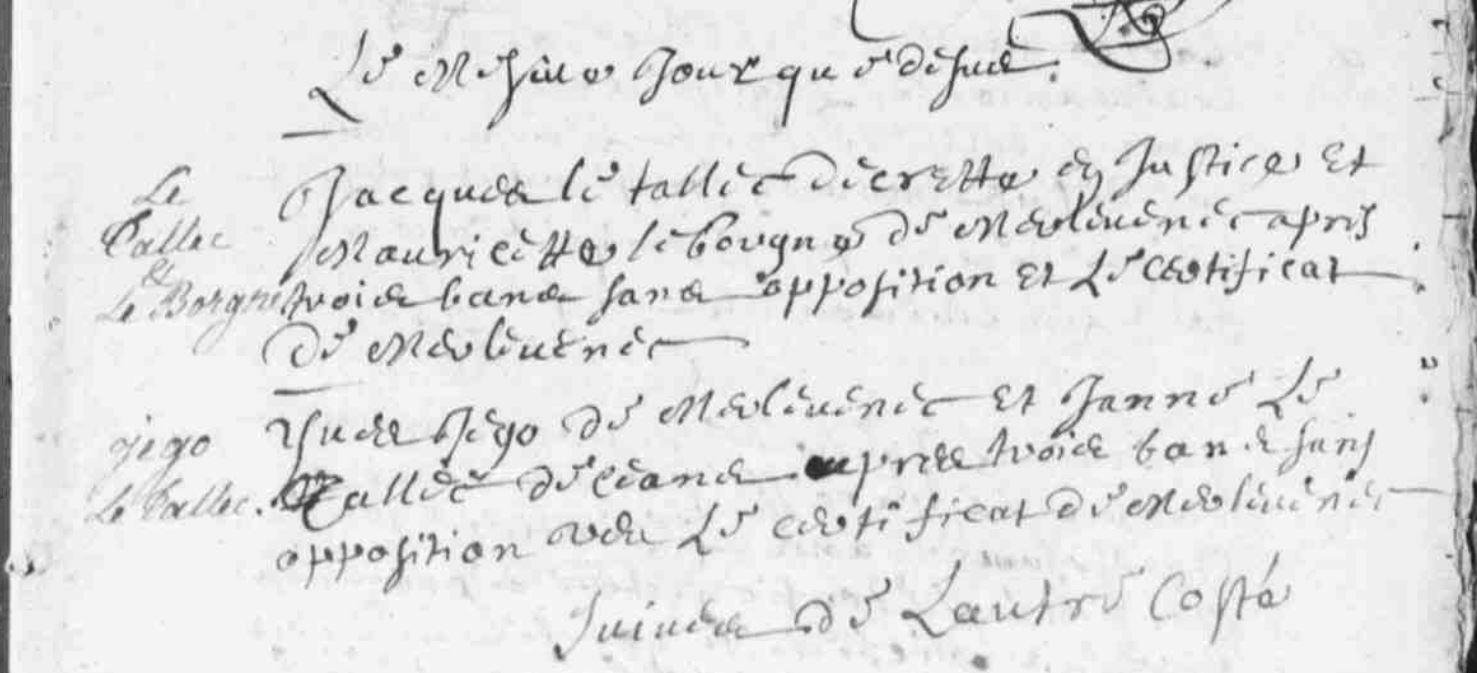 Le mesme Jour que desus
Le
Tallec
et
Le Borgne
Jacques le tallec decrette en Justice et
Mauricette le borgne de Merlevenec apres
trois bans sans opposition et Le certificat
de Merlevenec
jego
Le Tallec.
Yves Jego de Merlevenec et Janne Le
Tallec de ceans apres trois bans sans
opposition veu Le certificat de Merlevenec
suives de Lautre Costé